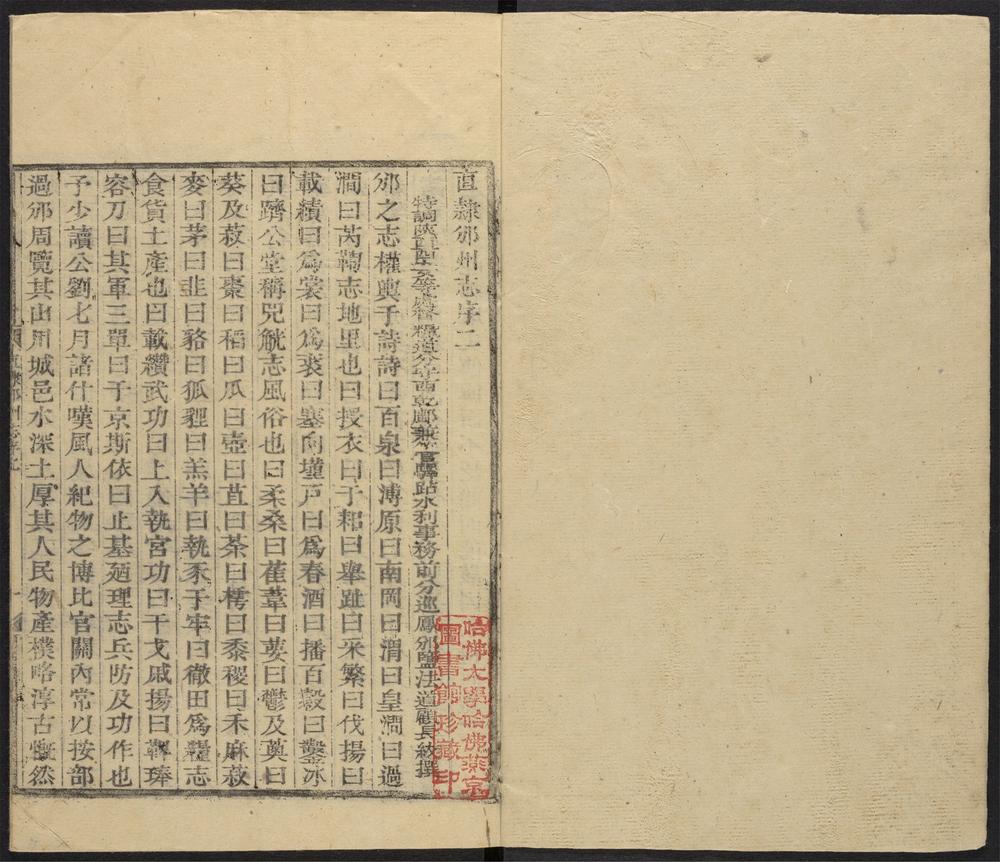 直隸邠州志序二
特調陝西 督糧道分守西乾鄜兼管驛站水利事務前分巡鳳邠鹽法道顧長紱撰
邠之志權輿于詩詩曰百泉曰溥原曰南岡曰渭曰皇澗曰過
澗曰芮鞫志地里也曰授衣曰于耜曰舉趾曰采蘩曰伐揚曰
載績曰爲裳曰爲裘曰塞向墐戸曰爲春酒曰播百穀曰鑿冰
曰躋公堂稱兕觥志風俗也曰柔桑曰萑葦曰葽曰鬱及薁曰
葵及菽曰棗曰稻曰瓜曰壺曰苴曰荼曰樗曰黍稷曰禾麻菽
麥曰茅曰韭曰貉曰狐貍曰羔羊曰執豕于牢曰徹田爲糧志
食貨土產也曰載纘武功曰上入執宮功曰干戈戚揚曰鞞琫
容刀曰其軍三單曰于京斯依曰止基廼理志兵防及功作也
予少讀公劉七月諸什嘆風人紀物之博比官關內常以按部
過邠周覽其山川城邑水深土厚其人民物產樸略淳古慨然
直隸邠州志序二
哈佛大學哈佛燕京
圖書館珍藏印